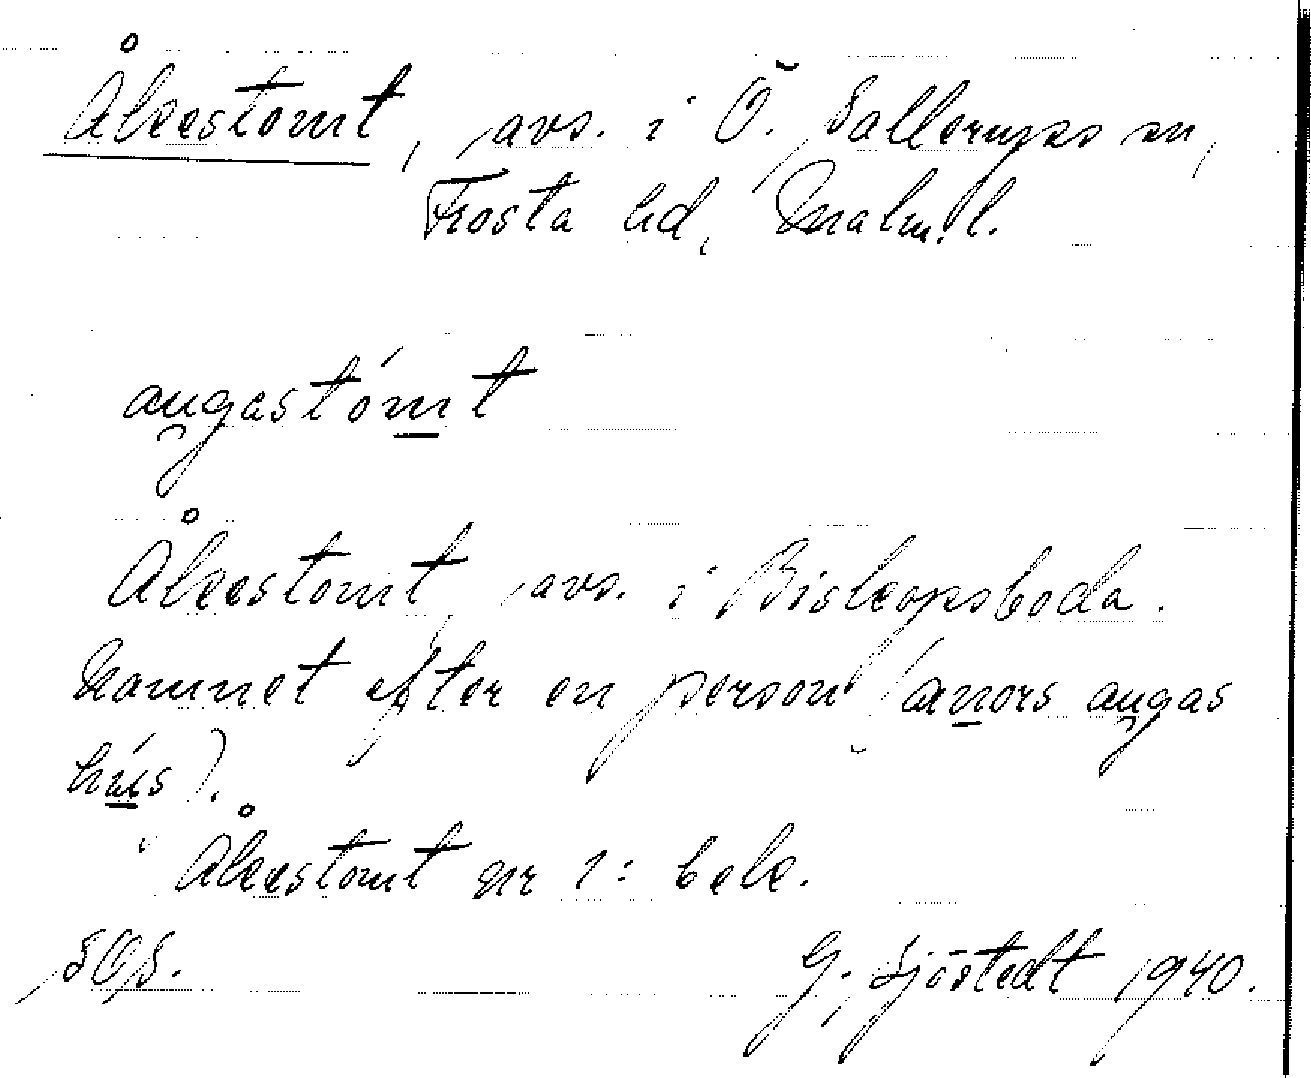 Åkestomt, avs. i Ö. Sallerups sn,
Frosta hd, Malm. l.
augastómt
Åkestomt, avs. i Biskopsboda.
Namnet efter en person (anors augas
hús).
Åkestomt nr 1: bebe.
SOS.
G. Sjöstedt 1940.